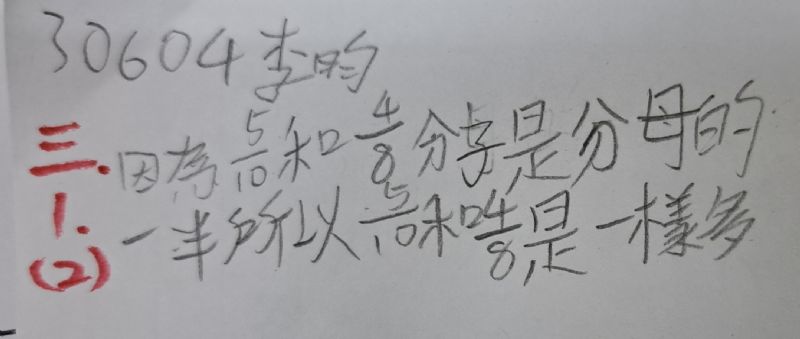 30604 李昀
三. 因為 5/10 和 4/8 分子是分母的
1. 一半所以 5/10 和 4/8 是一樣多
(2)